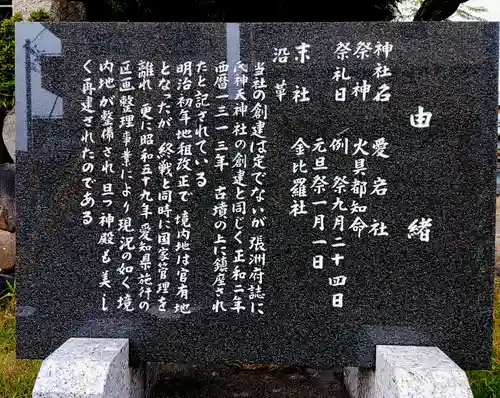 由緒
神社名 愛宕社
祭神 火具都知命
祭礼日 例祭九月二十四日
元旦祭一月一日
末社 金比羅社
沿革
当社の創建は定でないが張洲府誌に
氏神天神社の創建と同じく正和二年
西暦一三一三年 古墳の上に鎮座され
たと記されている
明治初年地租改正で境内地は官有地
となったが 終戦と同時に国家管理を
離れ 更に昭和五十九年愛知県施行の
区画整理事業により現況の如く境
内地が整備され且つ神殿も美し
く再建されたのである